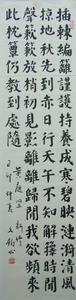 插棘編籬謹護持養成寒碧映漣漪清風
掠地秋先到赤日行天午不知解籜時聞
聲簌簌放梢初見影離離歸閒我欲頻來
此枕簟仍教到處隨
黃庭堅 新竹